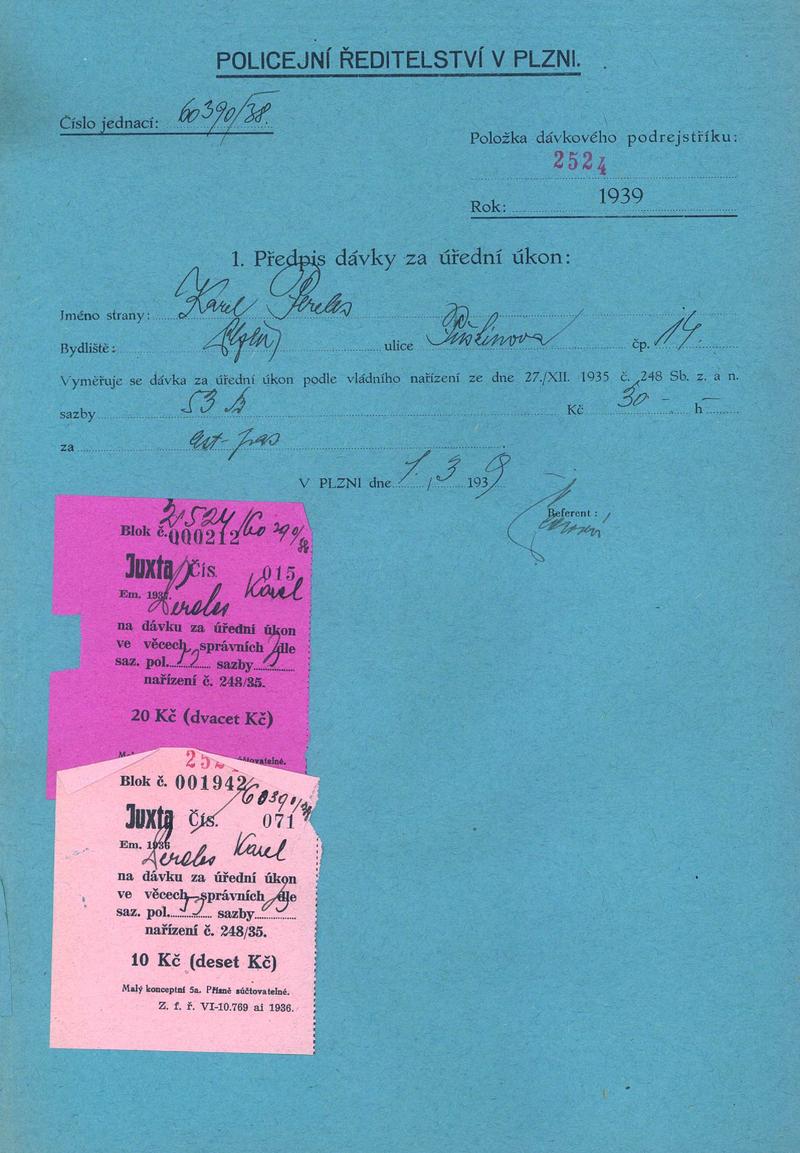 POLICEJNÍ ŘEDITELSTVÍ V PLZNI.
Číslo jednací: 60390/38.
Položka dávkového podrejstříku:
2524
Rok: 1939
1. Předpis dávky za úřední úkon:
Jméno strany: Karel Pereles
Bydliště: Plzeň ulice Puškinova čp. 14.
Vyměřuje se dávka za úřední úkon podle vládního nařízení ze dne 27./XII. 1935 č. 248 Sb. z. a n.
sazby 53 b Kč 30 - h -
za cest-pas
V PLZNI dne 1./3 1939
Referent:
2524/60390/38
Blok č. 000212
Juxta Čís. 015
Em. 1937.
Pereles Karel
na dávku za úřední úkon
ve věcech správních dle
saz. pol. sazby
nařízení č. 248/35.
20 Kč (dvacet Kč)
252
Blok č. 001942
/60390/38
Juxta Čís. 071
Em. 1936
Pereles Karel
na dávku za úřední úkon
ve věcech správních dle
saz. pol. 53 sazby
nařízení č. 248/35.
10 Kč (deset Kč)
Malý konceptní 5a. Přísně súčtovatelné.
Z. f. ř. VI-10.769 ai 1936.